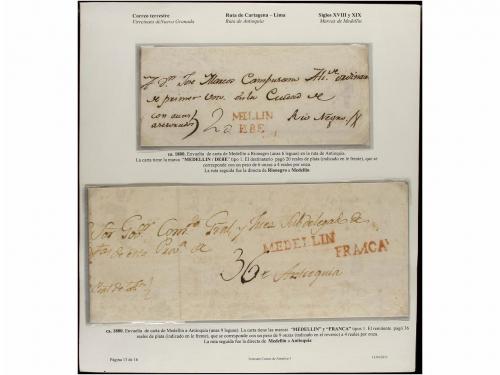 Correo terrestre Ruta de Cartagena – Lima Siglos XVIII y XIX
Virreinato de Nueva Granada Ruta de Antioquia Marcas de Medellín
A Dn Jose Marcos Campuzano Alle ordinario
de primer voto en la Ciudad de
con autos
2 MELLIN
DEBE
Rio Negro
ca. 1800. Envuelta de carta de Medellín a Rionegro (unas 6 leguas) en la ruta de Antioquia.
La carta tiene la marca "MEDELLIN / DEBE" tipo 1. El destinatario pagó 20 reales de plata (indicado en le frente), que se
corresponde con un peso de 6 onzas a 4 reales por onza.
La ruta seguida fue la directa de Rionegro a Medellín
Gral y Juez Subdelegado de
de esta de
36 MEDELLIN
FRANCA
Antioquia
ca. 1800. Envuelta de carta de Medellín a Antioquia (unas 9 leguas). La carta tiene las marcas "MEDELLIN" y "FRANCA" tipos 1. El remitente pagó 36
reales de plata (indicado en le frente), que se corresponde con un peso de 9 onzas (indicado en el reverso) a 4 reales por onza.
La ruta seguida fue la directa de Medellín a Antioquia
Página 13 de 16